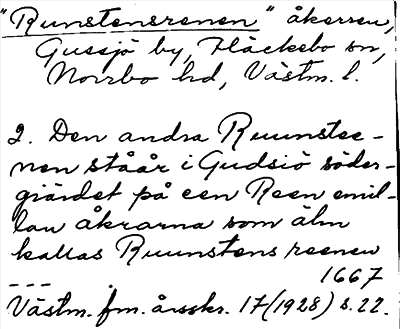 "Runstensrenen" åkerren,
Gussjö by, Fläckebo sn,
Norrbo hd, Västm. l.
2. Den andra Ruunstee-
nen ståår i Gudsiö söder-
giärdet på een Reen emil-
lan åkrarna som älm
kallas Ruunstens reenen
--- 1667
Västm. fm. årsskr. 17 (1928) s. 22.